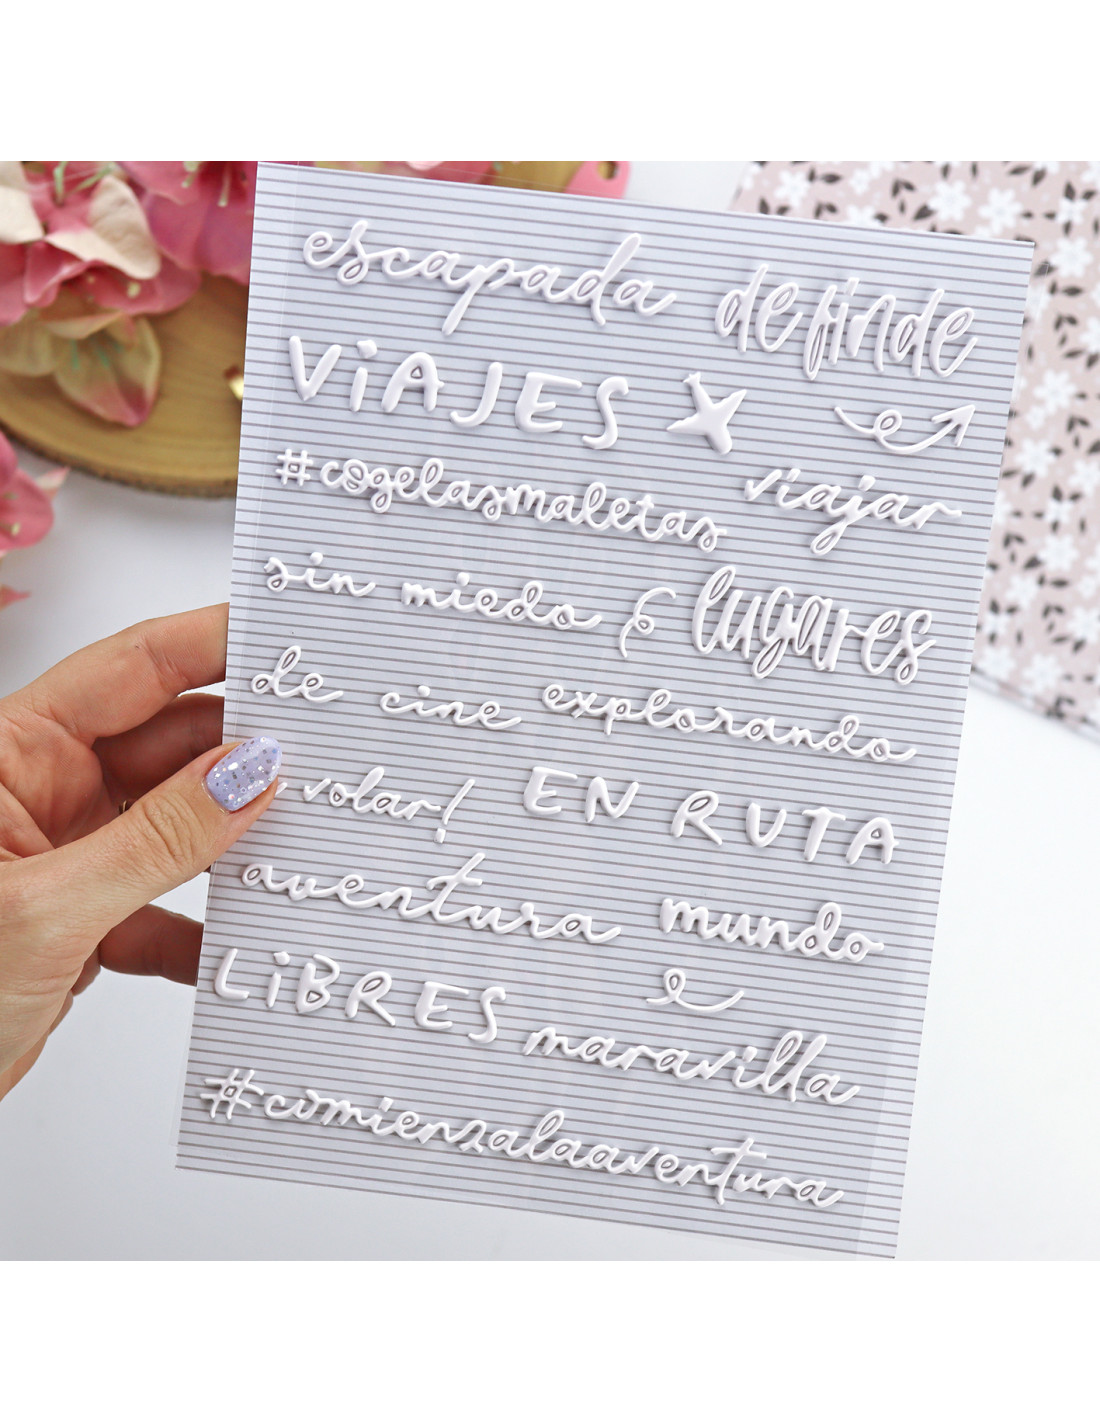 escapada de finde
ViAJES
#cogelasmaletas viajar
sin miedo lugares
de cine explorando
volar! EN RUTA
aventura mundo
LiBRES maravilla
#comienzalaaventura